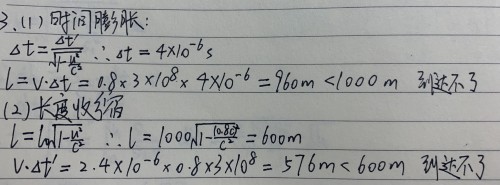 3.(1)时间膨胀:
Δt=Δt'/√(1-u²/c²) ∴Δt=4×10⁻⁶s
l=v·Δt=0.8×3×10⁸×4×10⁻⁶=960m<1000m 到达不了
(2)长度收缩
l=l₀√(1-u²/c²) ∴l=1000√(1-(0.8c)²/c²)=600m
v·Δt'=2.4×10⁻⁶×0.8×3×10⁸=576m<600m 到达不了